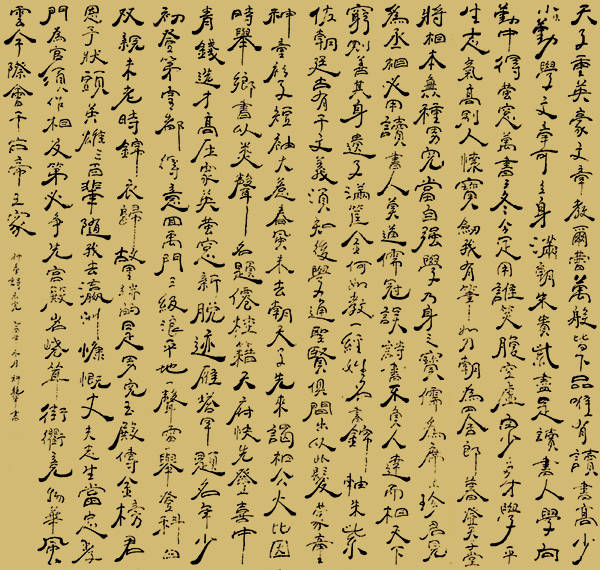 天子重英豪文章教爾曹萬般皆下品唯有讀書高少
小勤學文章可立身滿朝朱貴紫盡是讀書人學向
勤中得螢窗萬書三冬今足用誰笑腹空虛自少多才學平
生志氣高別人懷寶劍我有筆如刀朝為田舍郎暮登天子堂
將相本無種男兒當自強學乃身之寶儒為席上珍君見
為丞相必用讀書人莫道儒冠誤詩書不負人達而相天下
窮則善其身遺子滿籯金何如教一經姓名書錦軸朱紫
佐朝廷古有千文義須知後學通聖賢俱間出以此髮蒙童
神童衫子短袖大惹春風未去朝天子先來謁相公大比因
時舉鄉書以類聲名題僊桂籍天府快先登喜中
青錢選才高壓眾英螢窗新脫迹雁塔早題名年少
初登第皇都得意回禹門三級浪平地一聲雷舉登科的
双親未老時錦衣歸故里端的是男兒玉殿傳金榜君
恩予狀頭英雄三百輩隨我去瀛洲慷慨丈夫志生當忠孝
門為官須作相及第必爭先宮殿岧嶢聳街衢竟物華風
雲今際會千古帝王家